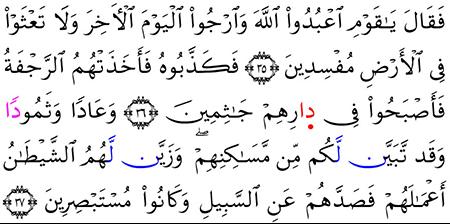 فَقَالَ يَٰقَوْمِ ٱعْبُدُوا۟ ٱللَّهَ وَٱرْجُوا۟ ٱلْيَوْمَ ٱلْأَخِرَ وَلَا تَعْثَوْا۟
فِى ٱلْأَرْضِ مُفْسِدِينَ ٣٥ فَكَذَّبُوهُ فَأَخَذَتْهُمُ ٱلرَّجْفَةُ
فَأَصْبَحُوا۟ فِى دِارِهِمْ جَٰثِمِينَ ٣٦ وَعَادًا وَثَمُودًا
وَقَد تَّبَيَّن لَّكُم مِّن مَّسَٰكِنِهِمْ ۖ وَزَيَّن لَّهُمُ ٱلشَّيْطَٰنُ
أَعْمَٰلَهُمْ فَصَدَّهُمْ عَنِ ٱلسَّبِيلِ وَكَانُوا۟ مُسْتَبْصِرِينَ ٣٧